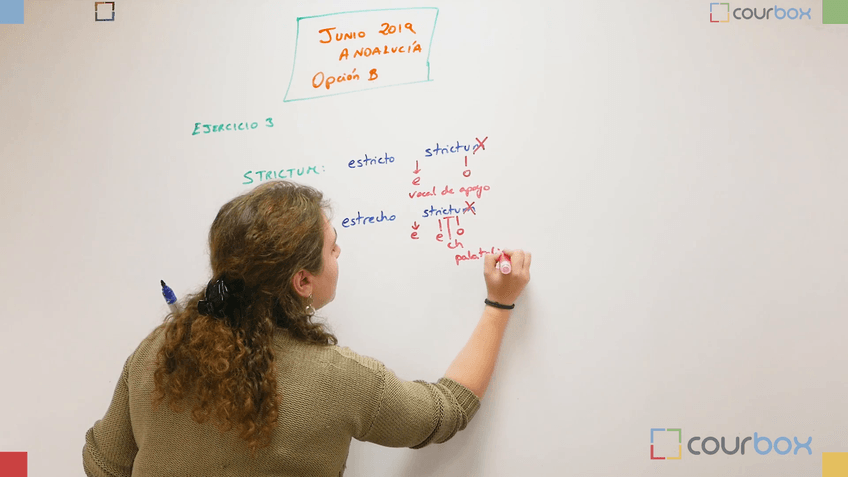 courbox
JUNIO 2019
ANDALUCÍA
Opción B
EJERCICIO 3
STRICTUM: estricto strictum
e o
vocal de apoyo
estrecho strictum
e e o
ch
courbox